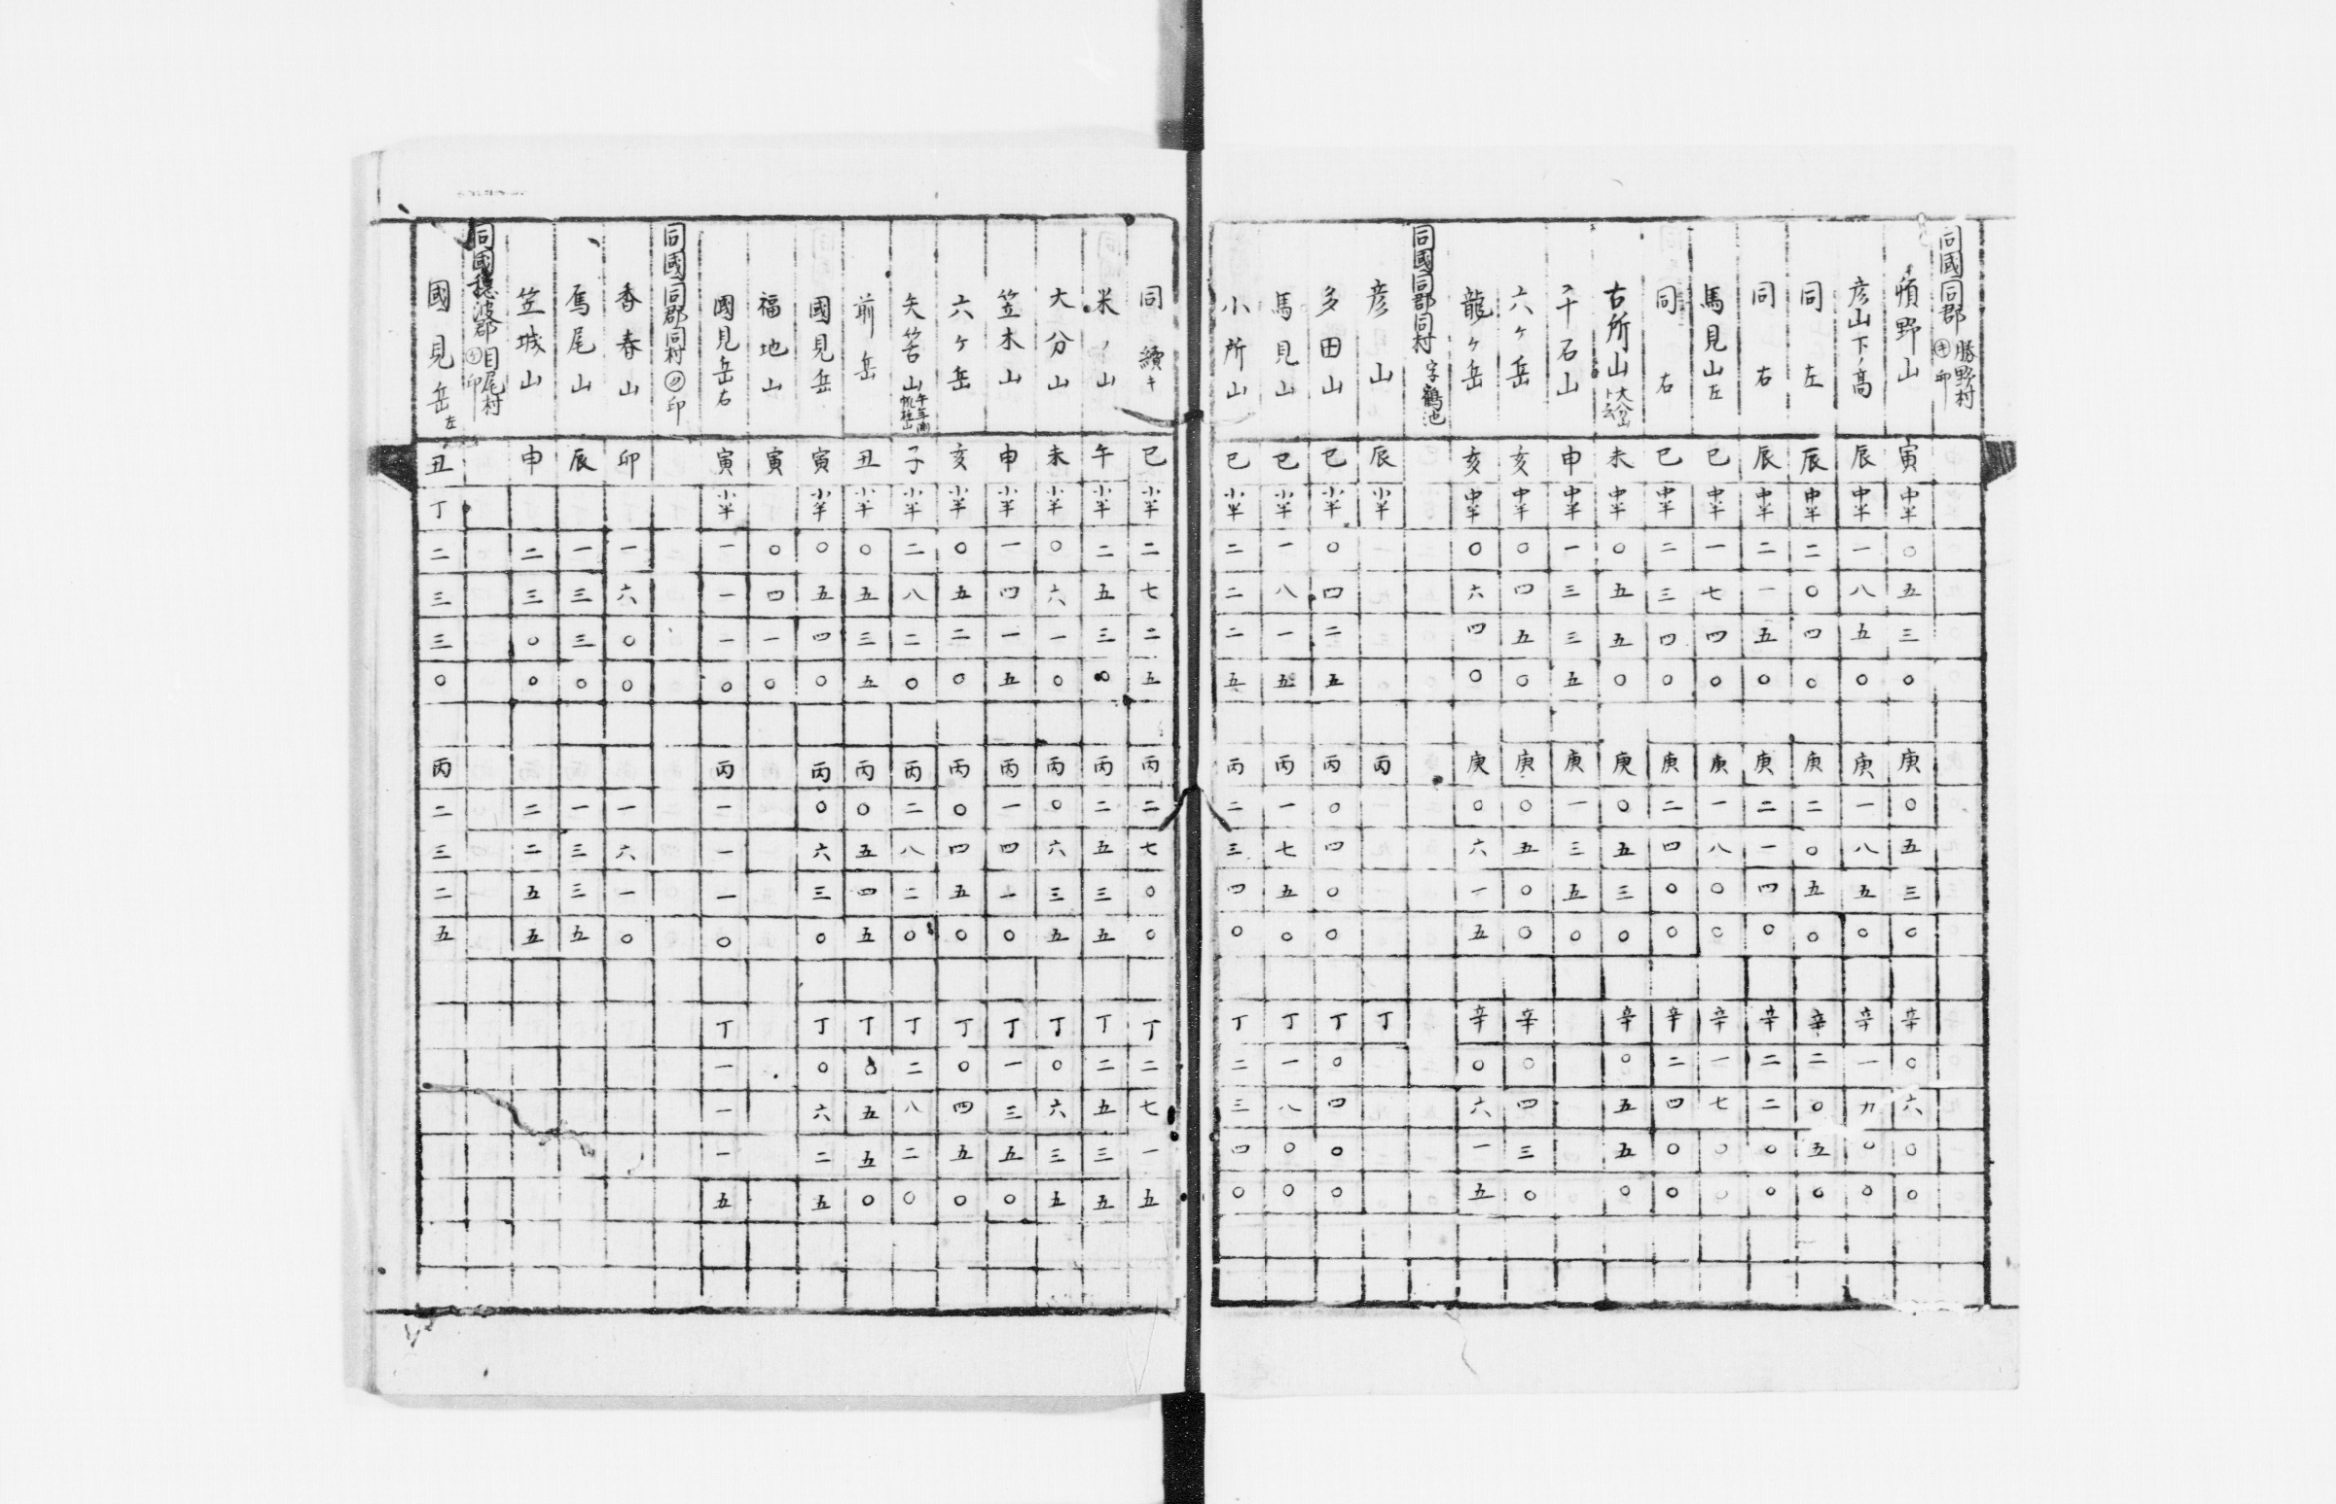 同國同郡勝野村㋖印
頓野山 寅 中半 〇 五 三 〇 庚 〇 五 三 〇 辛 〇 六 〇 〇
彦山下ノ高 辰 中半 一 八 五 〇 庚 一 八 五 〇 辛 一 九 〇 〇
同左 辰 中半 二 〇 四 〇 庚 二 〇 五 〇 辛 二 〇 五 〇
同右 辰 中半 二 一 五 〇 庚 二 一 四 〇 辛 二 二 〇 〇
馬見山左 巳 中半 一 七 四 〇 庚 一 八 〇 〇 辛 一 七 〇 〇
同右 巳 中半 二 三 四 〇 庚 二 四 〇 〇 辛 二 四 〇 〇
古所山 未 中半 〇 五 五 〇 庚 〇 五 三 〇 辛 〇 五 五 〇
干石山 申 中半 一 三 三 五 庚 一 三 五 〇
六ヶ岳 亥 中半 〇 四 五 〇 庚 〇 五 〇 〇 辛 〇 四 三 〇
龍ヶ岳 亥 中半 〇 六 四 〇 庚 〇 六 一 五 辛 〇 六 一 五
同國同郡同村字鶴池
彦山 辰 小半 丙 丁
多田山 巳 小半 〇 四 二 五 丙 〇 四 〇 〇 丁 〇 四 〇 〇
馬見山 巳 小半 一 八 一 五 丙 一 七 五 〇 丁 一 八 〇 〇
小所山 巳 小半 二 二 二 五 丙 二 三 四 〇 丁 二 三 四 〇
同續キ 巳 小半 二 七 二 五 丙 二 七 〇 〇 丁 二 七 一 五
米ノ山 午 小半 二 五 三 〇 丙 二 五 三 五 丁 二 五 三 五
大分山 未 小半 〇 六 一 〇 丙 〇 六 三 五 丁 〇 六 三 五
笠木山 申 小半 一 四 一 五 丙 一 四 一 〇 丁 一 三 五 〇
六ヶ岳 亥 小半 〇 五 二 〇 丙 〇 四 五 〇 丁 〇 四 五 〇
矢筈山 子 小半 二 八 二 〇 丙 二 八 二 〇 丁 二 八 二 〇
前岳 丑 小半 〇 五 三 五 丙 〇 五 四 五 丁 〇 五 五 〇
國見岳 寅 小半 〇 五 四 〇 丙 〇 六 三 〇 丁 〇 六 二 五
福地山 寅 〇 四 一 〇
國見岳右 寅 小半 一 一 一 〇 丙 一 一 一 〇 丁 一 一 一 五
同國同郡同村㋨印
香春山 卯 一 六 〇 〇 一 六 一 〇
馬尾山 辰 一 三 三 〇 一 三 三 五
笠城山 申 二 三 〇 〇 二 二 五 五
同國穂波郡目尾村印
國見岳左 丑 丁 二 三 三 〇 丙 二 三 二 五